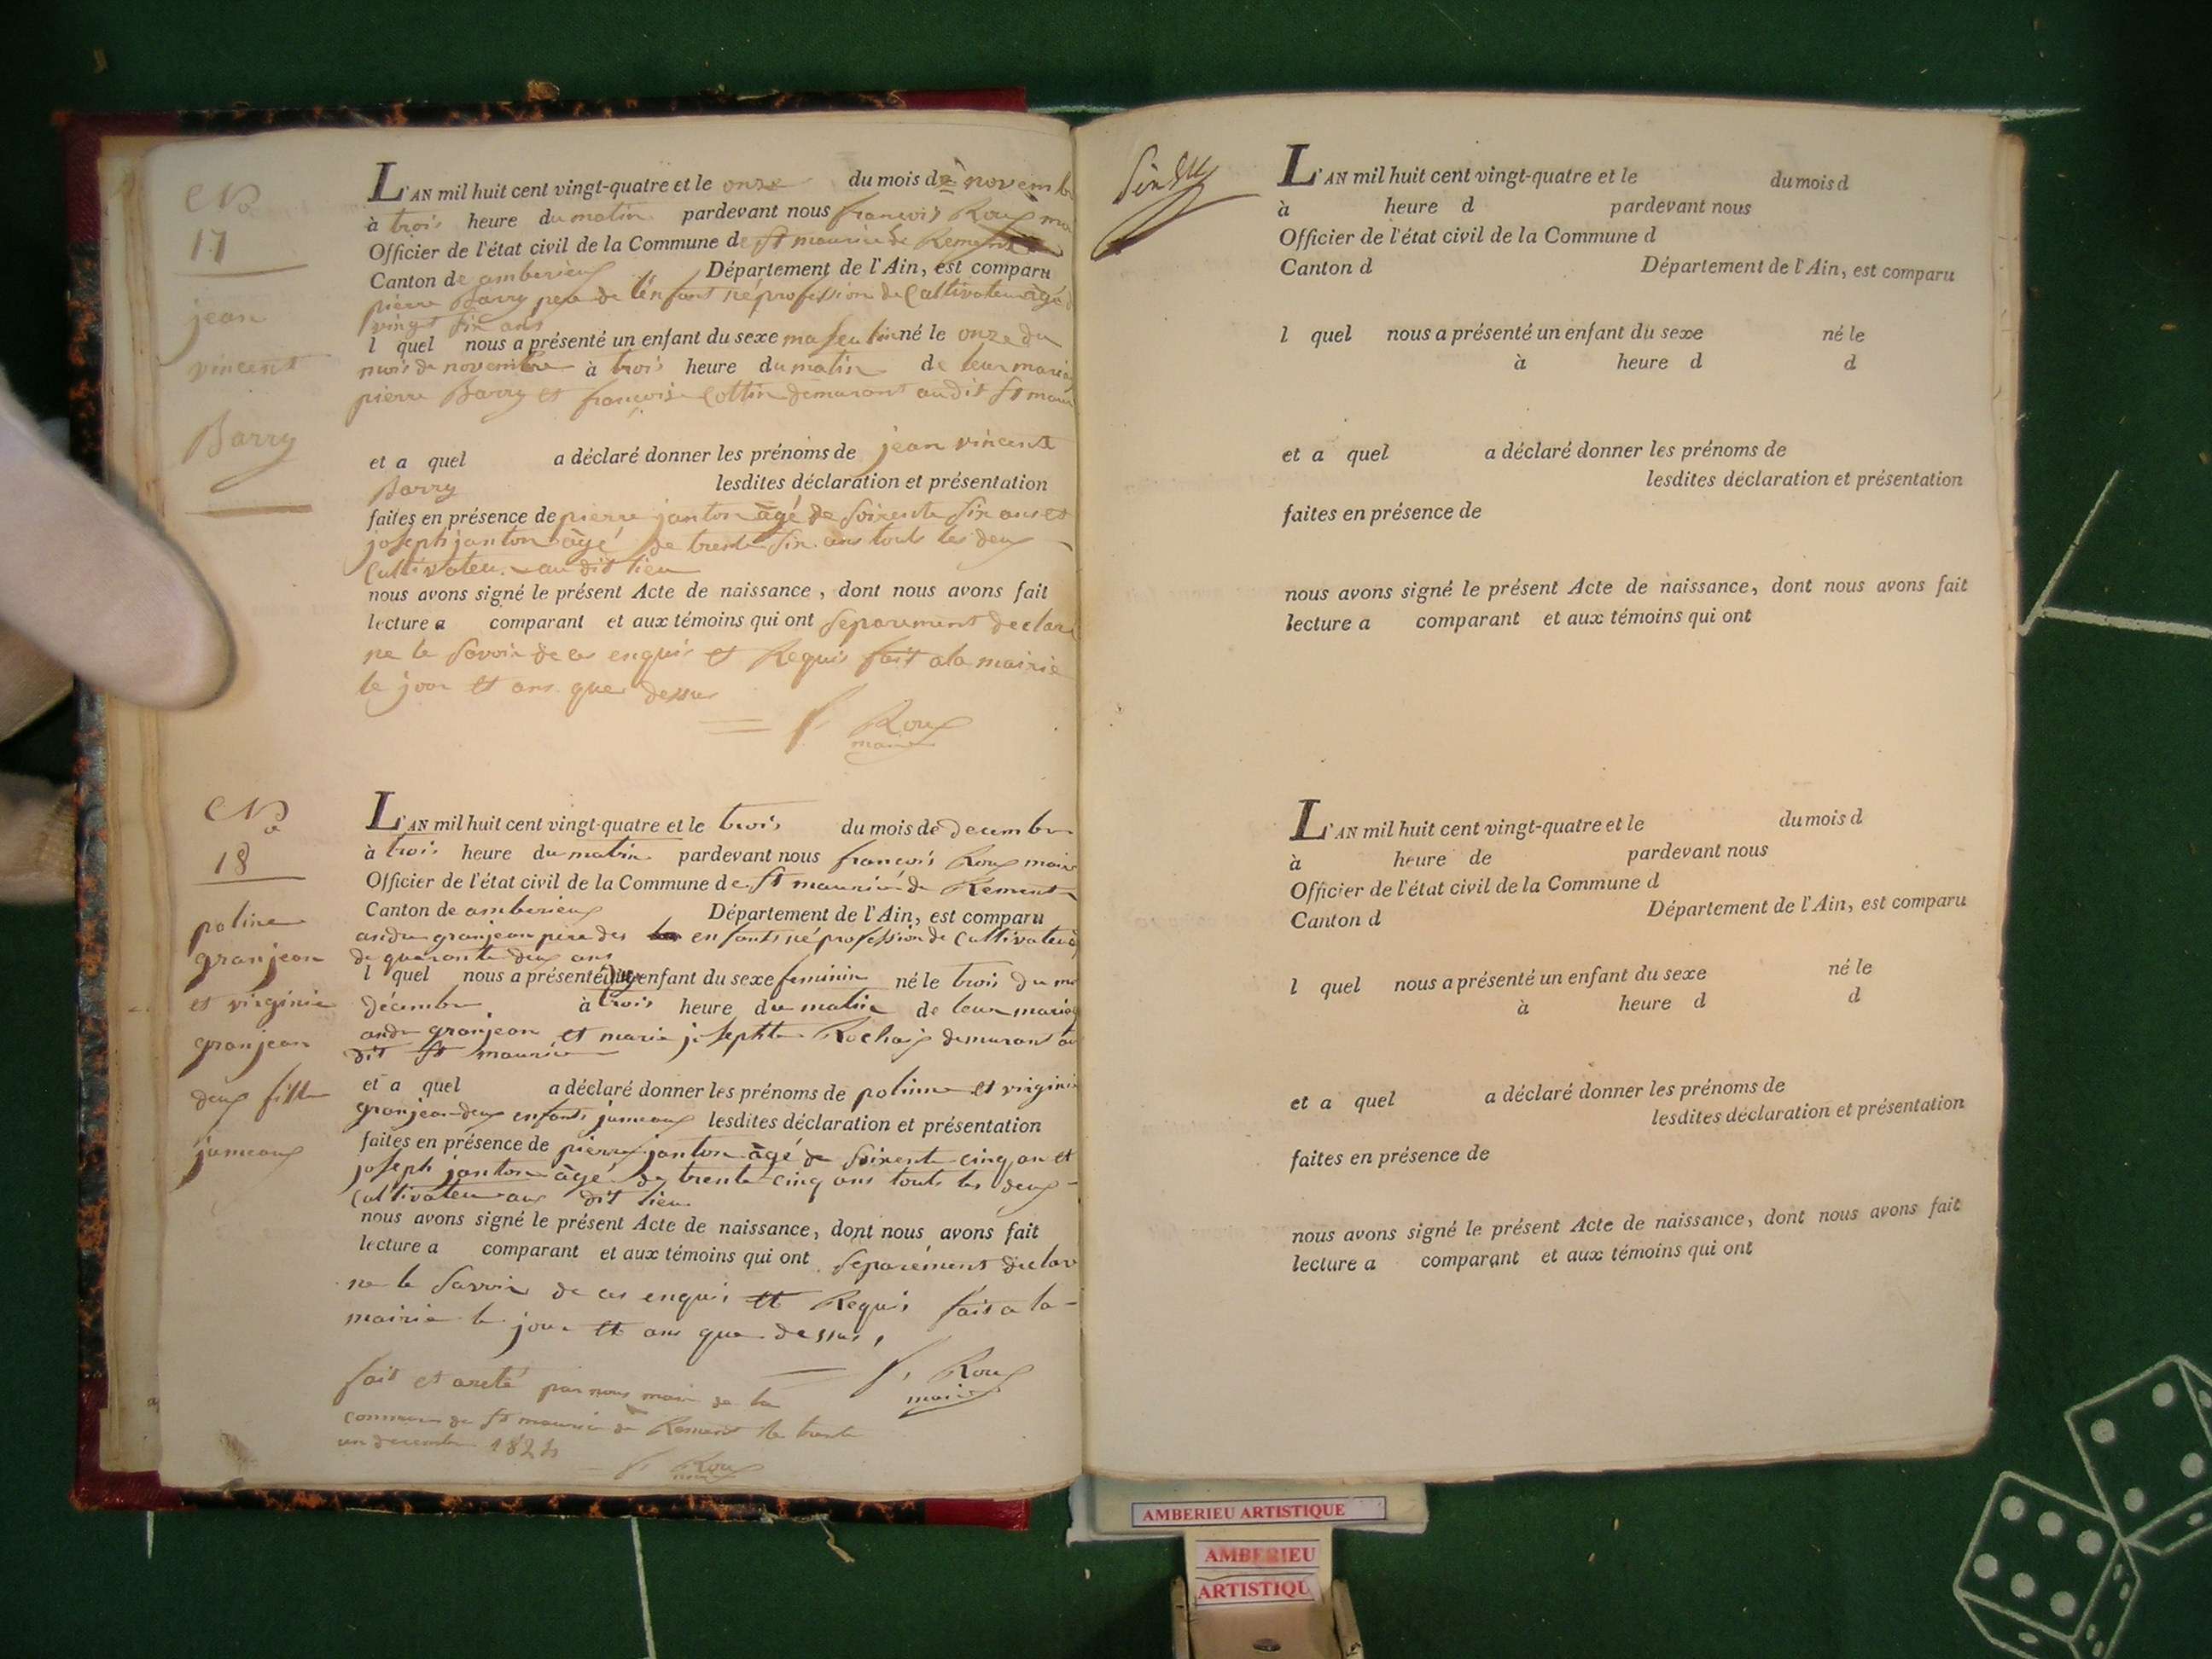 No
17
jean
vincent
Barry
L'AN mil huit cent vingt-quatre et le onze du mois de novembre
à trois heure du matin pardevant nous françois Roux
Officier de l'état civil de la Commune de St maurice de Remens
Canton de amberieux Département de l'Ain, est comparu
pierre Barry pere de lenfant né profession de Cultivateur agé
vingt six ans
l quel nous a présenté un enfant du sexe masculin né le onze du
mois de novembre à trois heure du matin de leur mariage
pierre Barry et françoise Cottin demurant audit St
et a quel a déclaré donner les prénoms de jean vincent
Barry lesdites déclaration et présentation
faites en présence de pierre janton âgé de soixente six ans et
joseph janton âgé de trente six ans touts les deux
Cultivateur au dit lieu
nous avons signé le présent Acte de naissance, dont nous avons fait
lecture a comparant et aux témoins qui ont separement declaré
ne le savoir de ces enquis et Requis fait a la mairie
le jour et ans que dessus
f Roux
maire
No
18
poline
granjean
et virginie
granjean
deux fille
jumeaux
L'AN mil huit cent vingt-quatre et le trois du mois de decembre
à trois heure du matin pardevant nous françois Roux maire
Officier de l'état civil de la Commune de St maurice de Remens
Canton de amberieux Département de l'Ain, est comparu
andre granjean pere des enfants né profession de Cultivateur
de quarante deux ans
l quel nous a présenté deux enfant du sexe feminin né le trois du
décembre à trois heure du matin de leur mariage
andre granjean et marie josephte Rochaix demurant au
dit St maurice
et a quel a déclaré donner les prénoms de poline et virginie
granjean deux enfants jumeaux lesdites déclaration et présentation
faites en présence de pierre janton âgé de soixente cinq an et
joseph janton âgé de trente cinq ans touts les deux
Cultivateur au dit lieu
nous avons signé le présent Acte de naissance, dont nous avons fait
lecture a comparant et aux témoins qui ont separément declaré
ne le savoir de ces enquis et Requis fait a la
mairie le jour et ans que dessus,
f, Roux
maire
fait et areté par nous maire de la
commune de St maurice de Remens le trente
un decembre 1824
f, Roux
maire
L'AN mil huit cent vingt-quatre et le du mois d
à heure d pardevant nous
Officier de l'état civil de la Commune d
Canton d Département de l'Ain, est comparu
l quel nous a présenté un enfant du sexe né le
à heure d d
et a quel a déclaré donner les prénoms de
lesdites déclaration et présentation
faites en présence de
nous avons signé le présent Acte de naissance, dont nous avons fait
lecture a comparant et aux témoins qui ont
L'AN mil huit cent vingt-quatre et le du mois d
à heure de pardevant nous
Officier de l'état civil de la Commune d
Canton d Département de l'Ain, est comparu
l quel nous a présenté un enfant du sexe né le
à heure d d
et a quel a déclaré donner les prénoms de
lesdites déclaration et présentation
faites en présence de
nous avons signé le présent Acte de naissance, dont nous avons fait
lecture a comparant et aux témoins qui ont
AMBERIEU ARTISTIQUE
AMBERIEU
ARTISTIQU